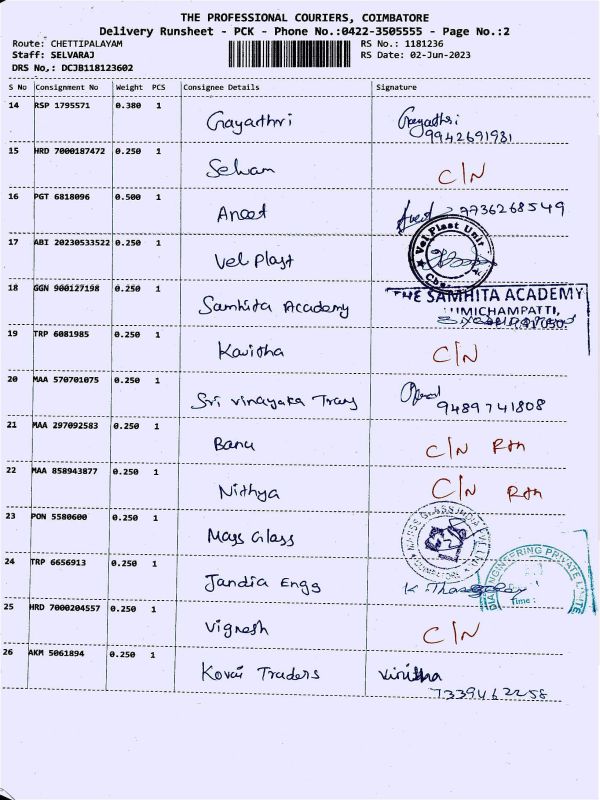 THE PROFESSIONAL COURIERS, COIMBATORE
Delivery Runsheet - PCK - Phone No.:0422-3505555 - Page No.:2
Route: CHETTIPALAYAM RS No.: 1181236
Staff: SELVARAJ RS Date: 02-Jun-2023
DRS No,: DCJB118123602
S No Consignment No Weight PCS Consignee Details Signature
14 RSP 1795571 0.380 1 Gayathri Gayathri
9942691981
15 HRD 7000187472 0.250 1 Selvam C/N
16 PGT 6818096 0.500 1 Aneet 9736268549
17 ABI 20230533522 0.250 1 Vel Plast Vel Plast Unit
18 GGN 900127198 0.250 1 Samhita Academy THE SAMHITA ACADEMY
19 TRP 6081985 0.250 1 Kavitha C/N
20 MAA 570701075 0.250 1 Sri Vinayaka Trans
9489741808
21 MAA 297092583 0.250 1 Banu C/N Rtn
22 MAA 858943877 0.250 1 Nithya C/N Rtn
23 PON 5580600 0.250 1 Mass Glass
24 TRP 6656913 0.250 1 Jandia Engg
Time :
25 HRD 7000204557 0.250 1 Vignesh C/N
26 AKM 5061894 0.250 1 Kovai Traders Vinitha
7339462258